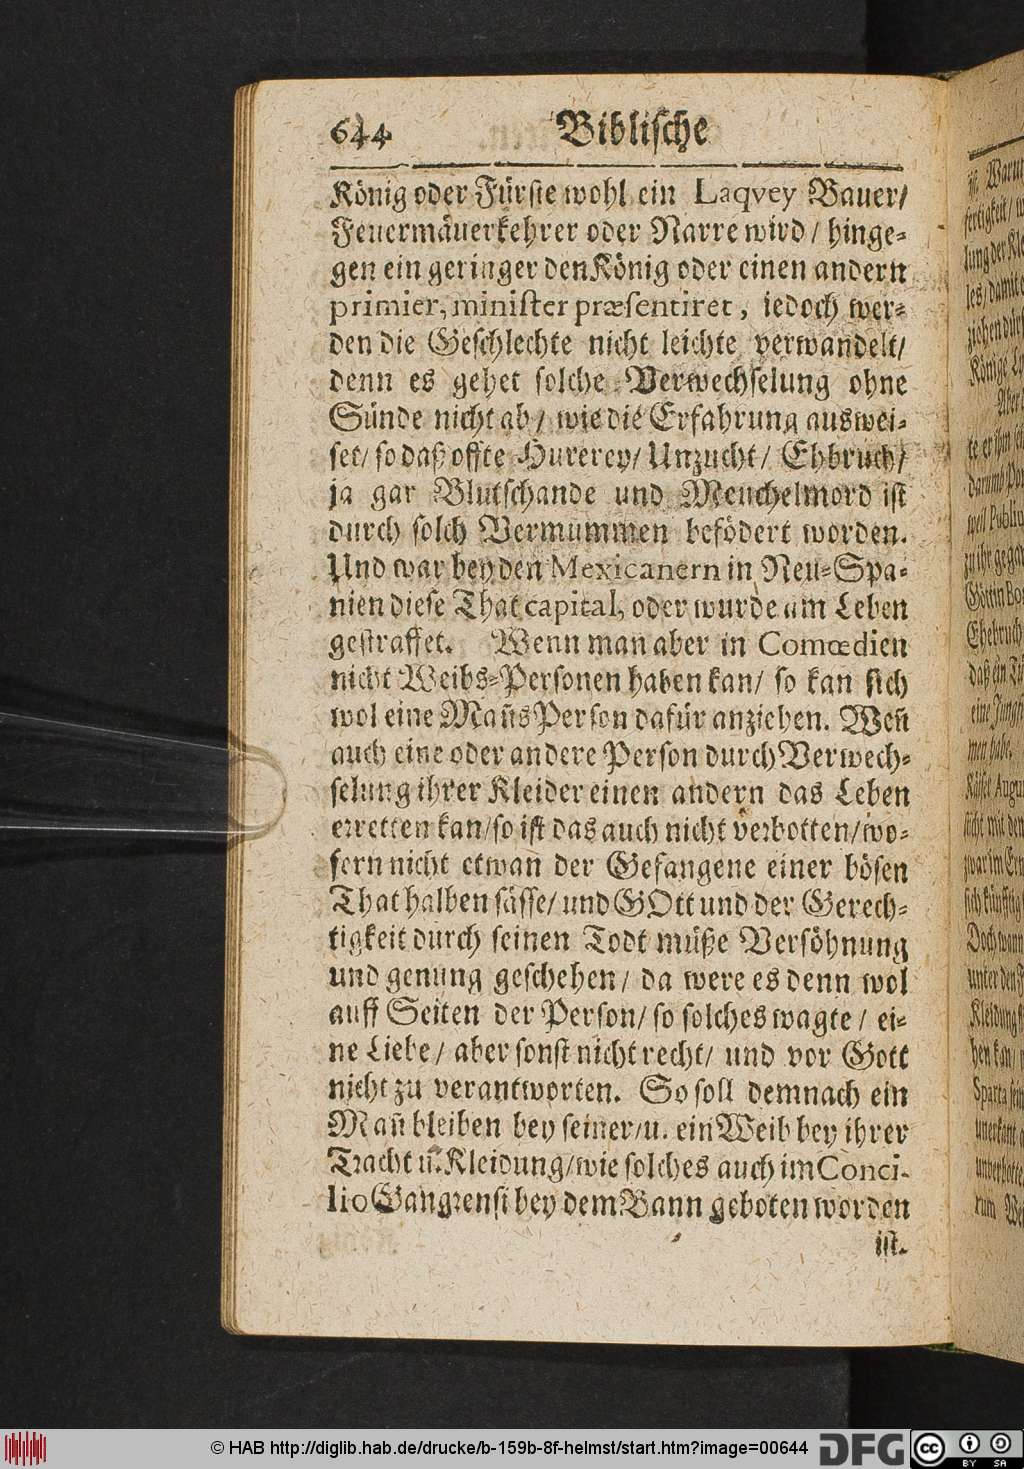 644 Biblische
König oder Fürste wohl ein Laqvey Bauer/
Feuermäuerkehrer oder Narre wird / hinge-
gen ein geringer den König oder einen andern
primier, minister præsentiret, iedoch wer-
den die Geschlechte nicht leichte verwandelt/
denn es gehet solche Verwechselung ohne
Sünde nicht ab / wie die Erfahrung auswei-
set/ so daß offte Hurerey/ Unzucht/ Ehbruch/
ja gar Blutschande und Meuchelmord ist
durch solch Vermummen befödert worden.
Und war bey den Mexicanern in Neu-Spa-
nien diese That capital, oder wurde am Leben
gestraffet. Wenn man aber in Comœdien
nicht Weibs-Personen haben kan/ so kan sich
wol eine Mañs Person dafür anziehen. Weñ
auch eine oder andere Person durch Verwech-
selung ihrer Kleider einen andern das Leben
erretten kan/so ist das auch nicht verbotten/wo-
fern nicht etwan der Gefangene einer bösen
That halben sässe/ und GOtt und der Gerech-
tigkeit durch seinen Todt müße Versöhnung
und genung geschehen / da were es denn wol
auff Seiten der Person/ so solches wagte / ei-
ne Liebe / aber sonst nicht recht/ und vor Gott
nicht zu verantworten. So soll demnach ein
Mañ bleiben bey seiner/u. ein Weib bey ihrer
Tracht u. Kleidung/wie solches auch im Conci-
lio Gangrensi bey dem Bann geboten worden
ist.
© HAB http://diglib.hab.de/drucke/b-159b-8f-helmst/start.htm?image=00644 DFG cc BY SA